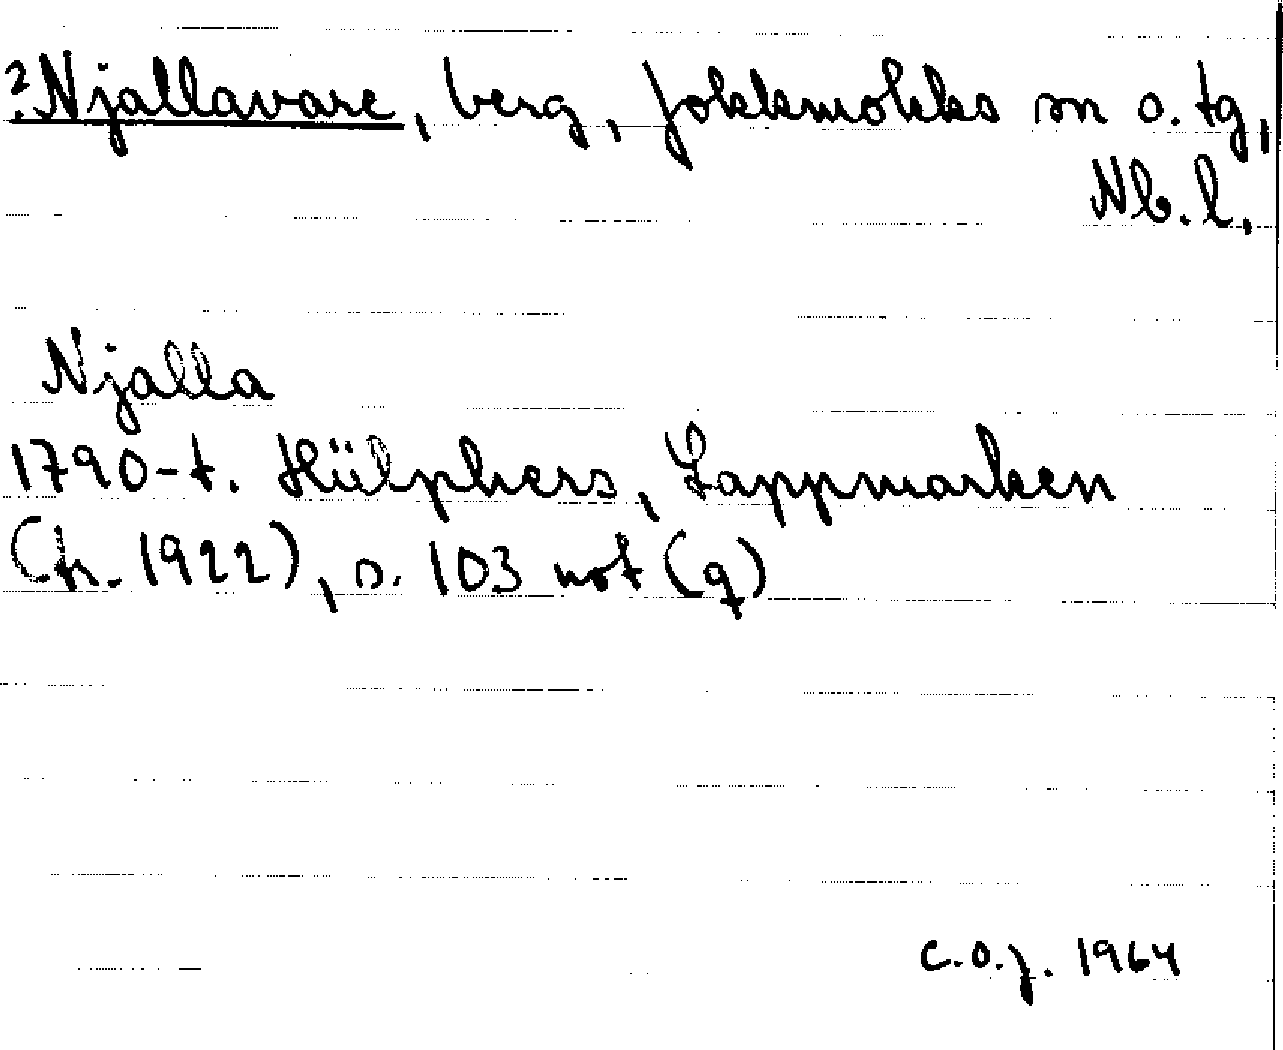 ?Njallavare, berg, Jokkmokks sn o. tg,
Nb. l.
Njalla
1790-t. Hülphers, Lappmarken
(tr. 1922), s. 103 not (q)
C.O.J. 1964